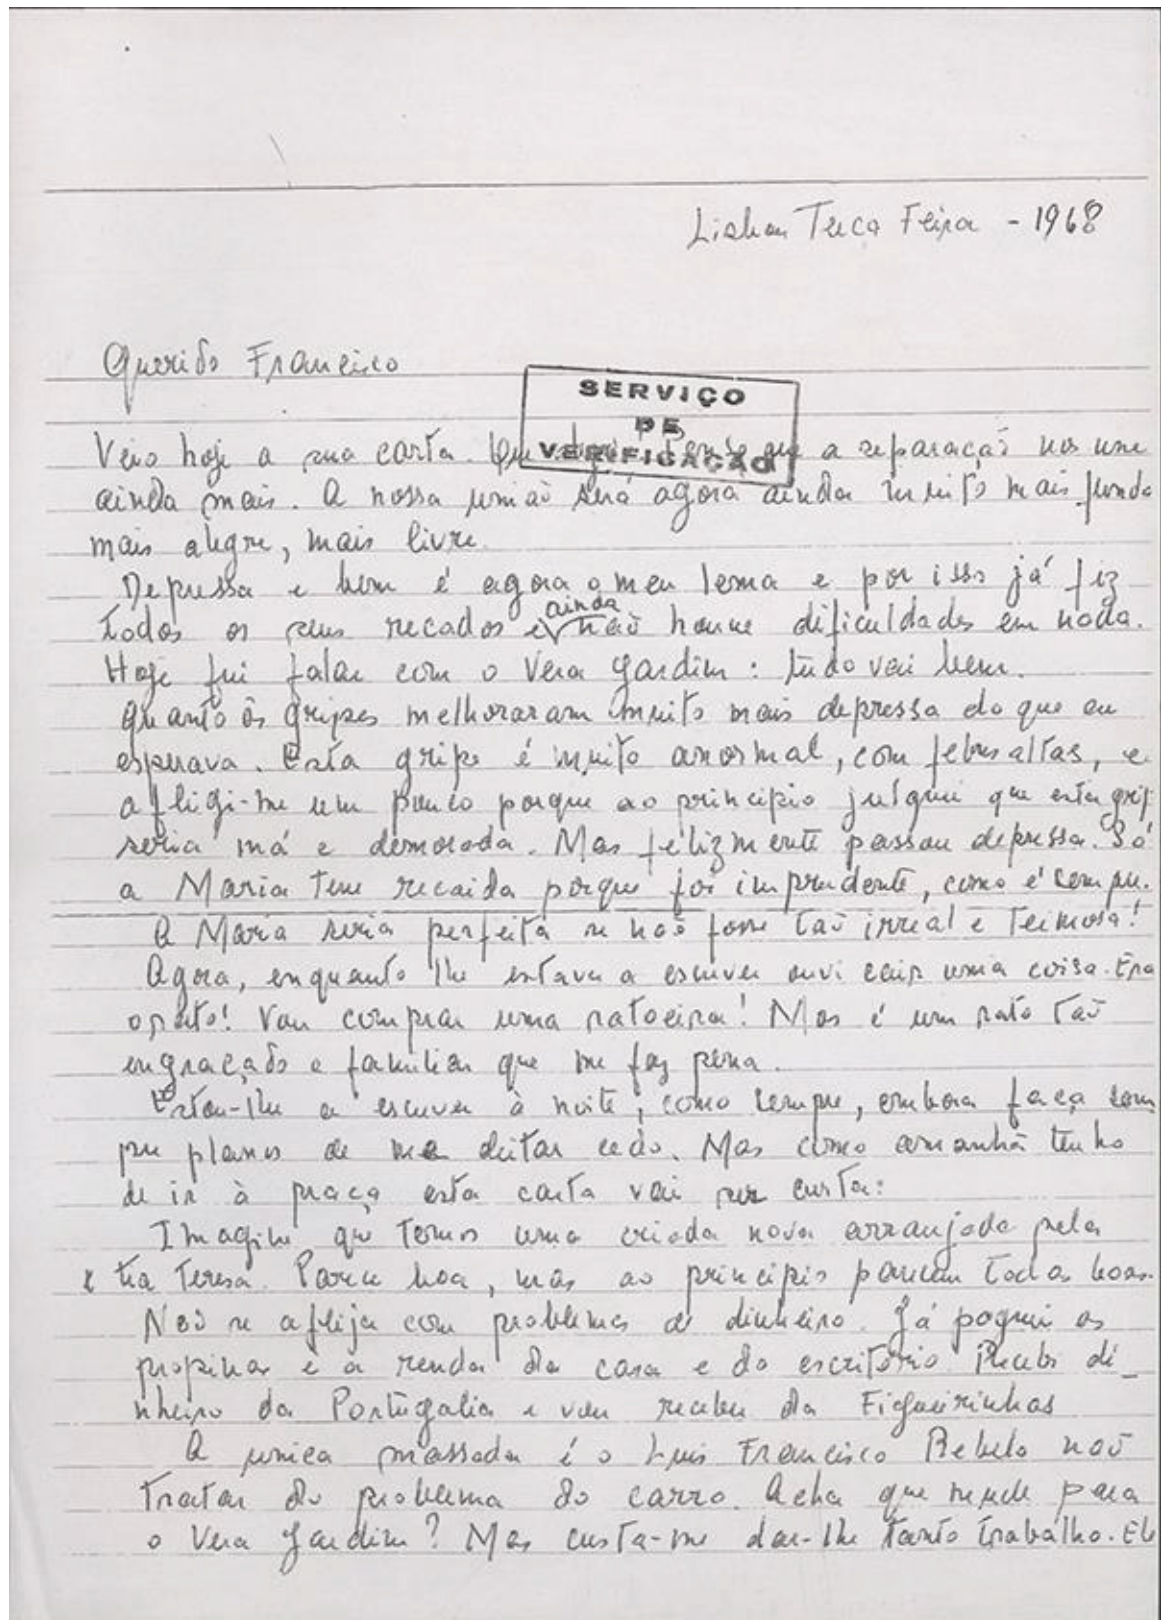 Lisboa Terça Feira - 1968
Querido Francisco
SERVIÇO
DE
VERIFICAÇÃO
Veio hoje a sua carta. que a separação nos une
ainda mais. A nossa união será agora ainda muito mais funda
mais alegre, mais livre.
Depressa e bem é agora o meu lema e por isso já fiz
todos os seus recados e ainda não houve dificuldades em nada.
Hoje fui falar com o Vera Jardim: tudo vai bem.
Quanto às gripes melhoraram muito mais depressa do que eu
esperava. Esta gripe é muito anormal, com febres altas, e
afligi-me um pouco porque ao principio julguei que esta grip
seria má e demorada. Mas felizmente passou depressa. Só
a Maria teve recaida porque foi imprudente, como é sempre.
A Maria seria perfeita se não fosse tão irreal e teimosa!
Agora, enquanto lhe estava a escrever ouvi cair uma coisa. Era
o rato! Vou comprar uma ratoeira! Mas é um rato tão
engraçado e familiar que me faz pena.
Estou-lhe a escrever à noite, como sempre, embora faça sem
pre planos de me deitar cedo. Mas como amanhã tenho
de ir à praça esta carta vai ser curta:
Imagine que temos uma criada nova arranjada pela
x tia Teresa. Parece boa, mas ao principio parecem todas boas.
Não se aflija com problemas de dinheiro. Já paguei as
propinas e a renda da casa e do escritório Recebi di_
nheiro da Portugalia e vou receber da Figueirinhas
A unica massada é o Luis Francisco Rebelo não
tratar do problema do carro. Acha que mude para
o Vera Jardim? Mas custa-me dar-lhe tanto trabalho. Ele